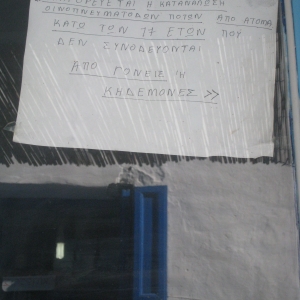 ΑΠΑΓΟΡΕΥΕΤΑΙ Η ΚΑΤΑΝΑΛΩΣΗ
ΟΙΝΟΠΝΕΥΜΑΤΩΔΩΝ ΠΟΤΩΝ ΑΠΟ ΑΤΟΜΑ
ΚΑΤΩ ΤΩΝ 17 ΕΤΩΝ ΠΟΥ
ΔΕΝ ΣΥΝΟΔΕΥΟΝΤΑΙ
ΑΠΟ ΓΟΝΕΙΣ Ή
ΚΗΔΕΜΟΝΕΣ >>